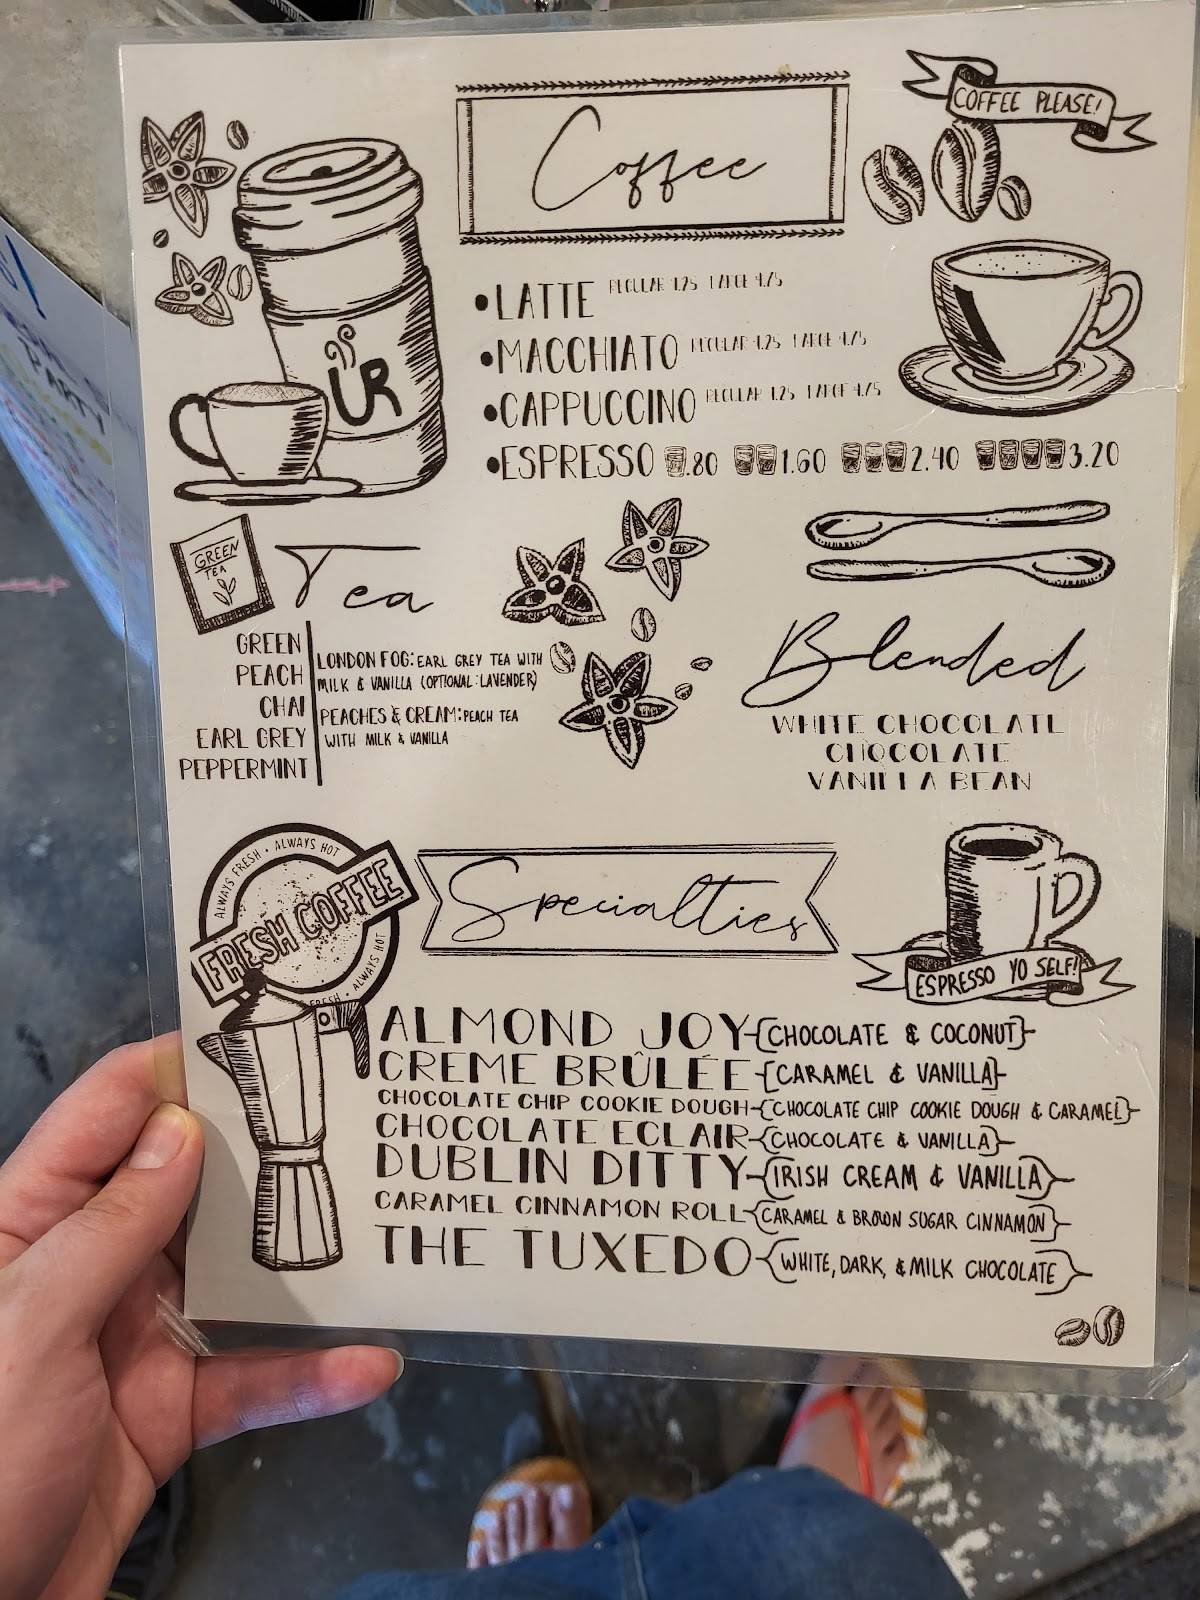 COFFEE PLEASE!
Coffee
UR
•LATTE REGULAR 4.25 LARGE 4.75
•MACCHIATO REGULAR 4.25 LARGE 4.75
•CAPPUCCINO REGULAR 4.25 LARGE 4.75
•ESPRESSO .80 1.60 2.40 3.20
GREEN
TEA
Tea
GREEN
PEACH
CHAI
EARL GREY
PEPPERMINT
LONDON FOG: EARL GREY TEA WITH
MILK & VANILLA (OPTIONAL: LAVENDER)
PEACHES & CREAM: PEACH TEA
WITH MILK & VANILLA
Blended
WHITE CHOCOLATE
CHOCOLATE
VANILLA BEAN
ALWAYS FRESH • ALWAYS HOT
FRESH COFFEE
FRESH • ALWAYS HOT
Specialties
ESPRESSO YO SELF!
ALMOND JOY-{CHOCOLATE & COCONUT}-
CREME BRÛLÉE-{CARAMEL & VANILLA}-
CHOCOLATE CHIP COOKIE DOUGH-{CHOCOLATE CHIP COOKIE DOUGH & CARAMEL}-
CHOCOLATE ECLAIR-{CHOCOLATE & VANILLA}-
DUBLIN DITTY-{IRISH CREAM & VANILLA}-
CARAMEL CINNAMON ROLL-{CARAMEL & BROWN SUGAR CINNAMON}-
THE TUXEDO-{WHITE, DARK, & MILK CHOCOLATE}-
PARTY